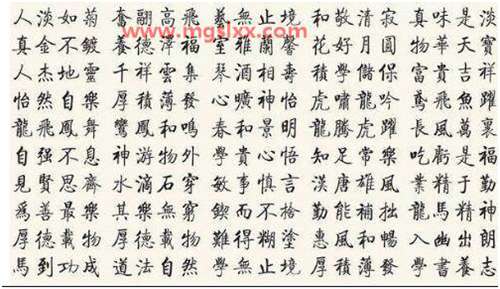 www.mgslxx.com
人淡如菊 奮翮高飛 藝無止境 和敬清寂 真味是淡
真金不鍍 養德澤福 雅蘭馨 花好月圓 物華天寶
人杰地靈 千祥雲集 琴酒相壽 積學儲保 富貴吉祥
怡然自樂 厚積薄發 心曠神怡 虎嘯龍吟 鳶飛魚躍
龍飛鳳舞 鸞鳳和鳴 春和景明 龍騰虎躍 長風萬裏
自强不息 神游物外 學貴心悟 知足常樂 吃虧是福
見賢思齊 水滴石穿 敏事慎言 漢唐雄風 業精于勤
爲善最樂 其樂無窮 鍥而不捨 勤能補拙 龍馬精神
厚德載物 厚德載物 難得糊塗 惠風和暢 入幽出朗
馬到功成 道法自然 學無止境 厚積薄發 學書養志